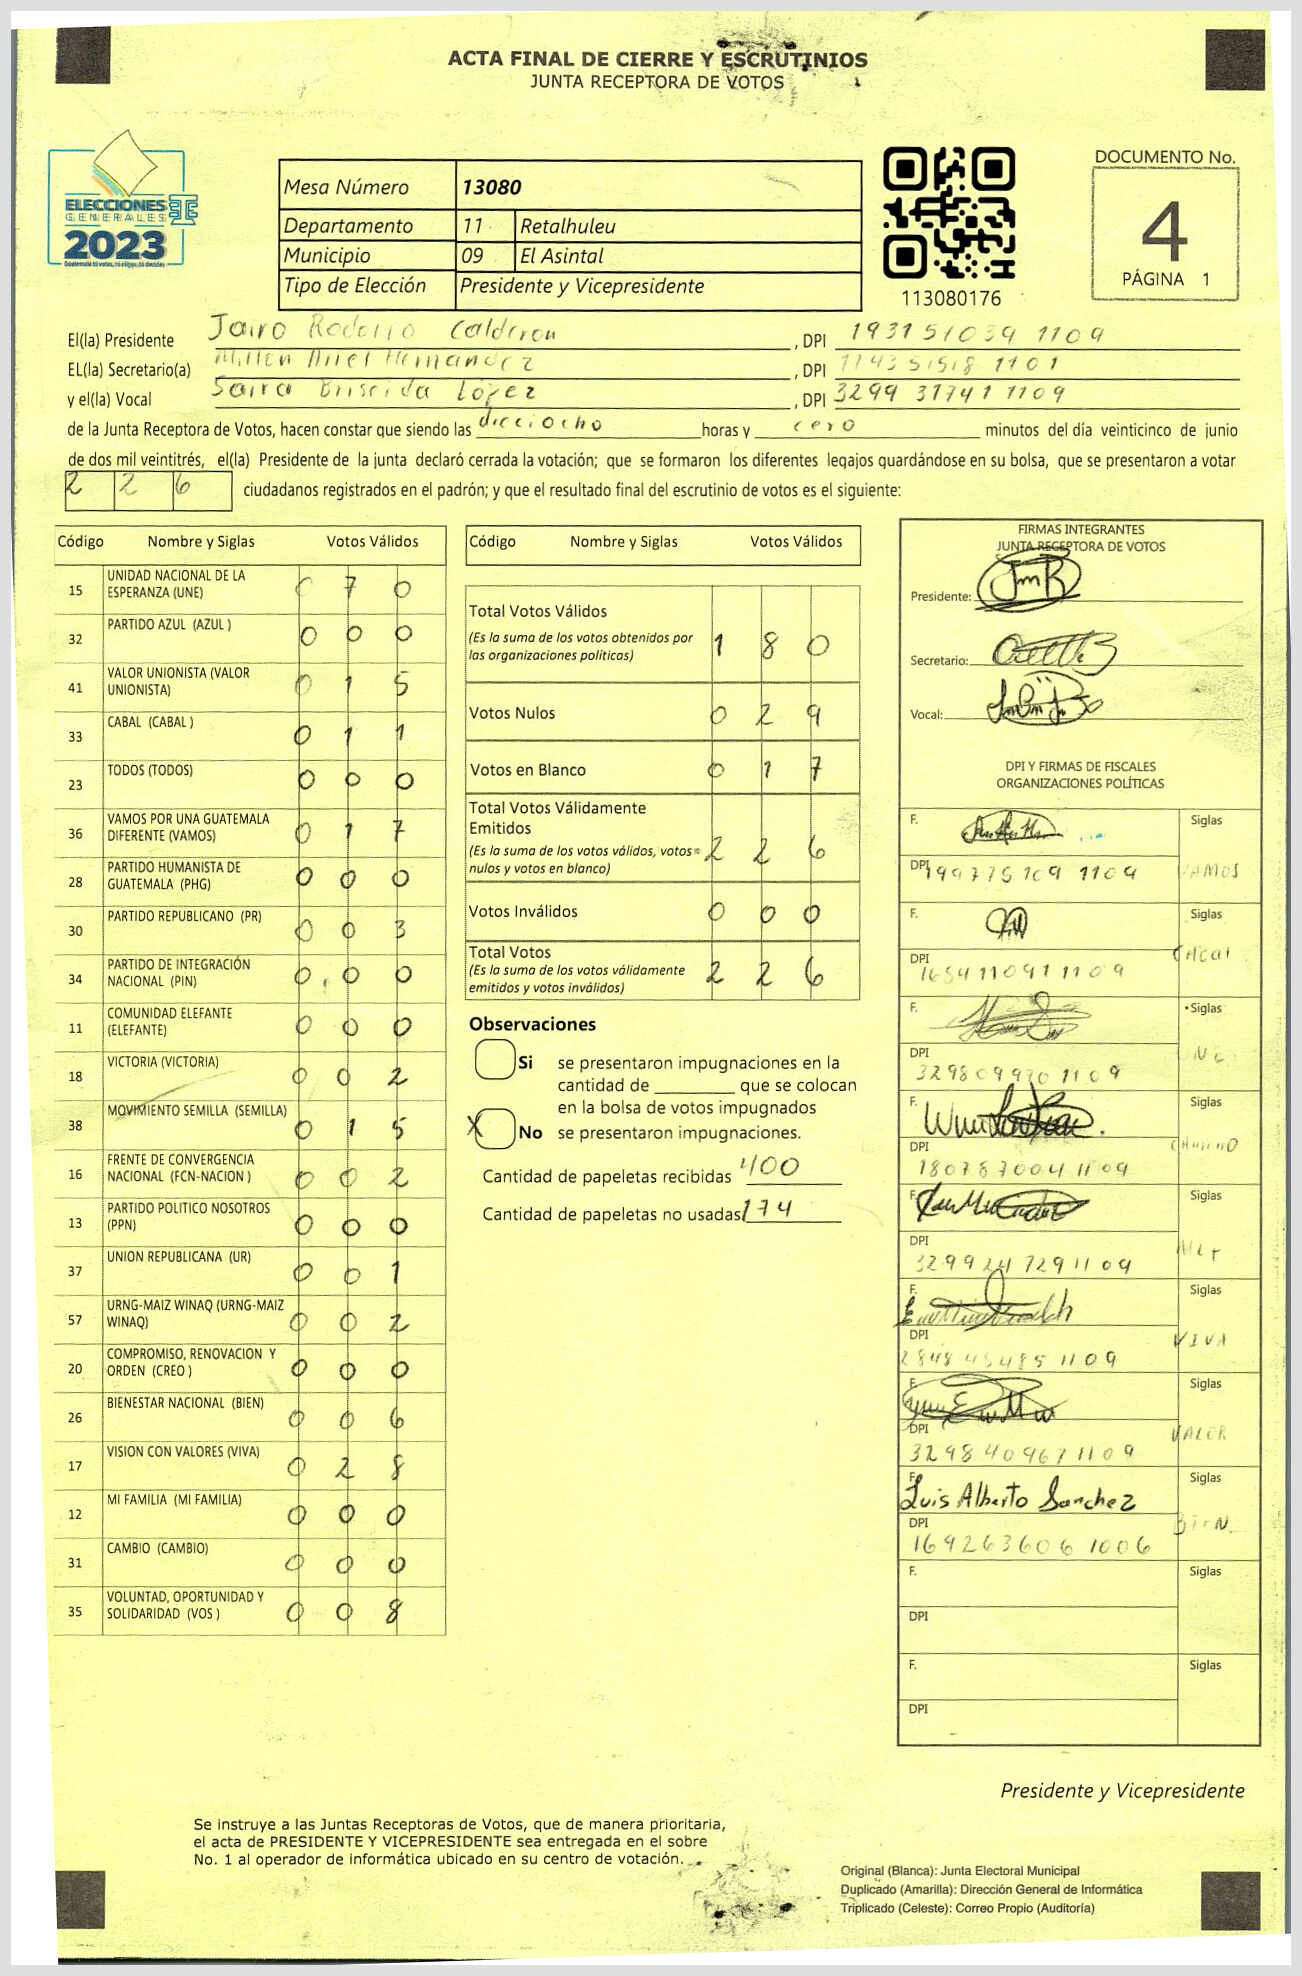 ACTA FINAL DE CIERRE Y ESCRUTINIOS
JUNTA RECEPTORA DE VOTOS
ELECCIONES
GENERALES
2023
Mesa Número 13080
Departamento 11 Retalhuleu
Municipio 09 El Asintal
Tipo de Elección Presidente y Vicepresidente
113080176
DOCUMENTO No.
4
PÁGINA 1
El(la) Presidente Jairo Rodolfo Calderon , DPI 1931 51039 1109
EL(la) Secretario(a) Hernandez , DPI 1101
y el(la) Vocal López , DPI 3299 31741 1109
de la Junta Receptora de Votos, hacen constar que siendo las dieciocho horas y cero minutos del día veinticinco de junio
de dos mil veintitrés, el(la) Presidente de la junta declaró cerrada la votación; que se formaron los diferentes legajos guardándose en su bolsa, que se presentaron a votar
2 2 6 ciudadanos registrados en el padrón; y que el resultado final del escrutinio de votos es el siguiente:
Código Nombre y Siglas Votos Válidos
15 UNIDAD NACIONAL DE LA ESPERANZA (UNE) 0 7 0
32 PARTIDO AZUL (AZUL ) 0 0 0
41 VALOR UNIONISTA (VALOR UNIONISTA) 0 1 5
33 CABAL (CABAL ) 0 1 1
23 TODOS (TODOS) 0 0 0
36 VAMOS POR UNA GUATEMALA DIFERENTE (VAMOS) 0 1 7
28 PARTIDO HUMANISTA DE GUATEMALA (PHG) 0 0 0
30 PARTIDO REPUBLICANO (PR) 0 0 3
34 PARTIDO DE INTEGRACIÓN NACIONAL (PIN) 0 0 0
11 COMUNIDAD ELEFANTE (ELEFANTE) 0 0 0
18 VICTORIA (VICTORIA) 0 0 2
38 MOVIMIENTO SEMILLA (SEMILLA) 0 1 5
16 FRENTE DE CONVERGENCIA NACIONAL (FCN-NACION ) 0 0 2
13 PARTIDO POLITICO NOSOTROS (PPN) 0 0 0
37 UNION REPUBLICANA (UR) 0 0 1
57 URNG-MAIZ WINAQ (URNG-MAIZ WINAQ) 0 0 2
20 COMPROMISO, RENOVACION Y ORDEN (CREO ) 0 0 0
26 BIENESTAR NACIONAL (BIEN) 0 0 6
17 VISION CON VALORES (VIVA) 0 2 8
12 MI FAMILIA (MI FAMILIA) 0 0 0
31 CAMBIO (CAMBIO) 0 0 0
35 VOLUNTAD, OPORTUNIDAD Y SOLIDARIDAD (VOS ) 0 0 8
Código Nombre y Siglas Votos Válidos
Total Votos Válidos
(Es la suma de los votos obtenidos por las organizaciones políticas) 1 8 0
Votos Nulos 0 2 9
Votos en Blanco 0 1 7
Total Votos Válidamente Emitidos
(Es la suma de los votos válidos, votos nulos y votos en blanco) 2 2 6
Votos Inválidos 0 0 0
Total Votos
(Es la suma de los votos válidamente emitidos y votos inválidos) 2 2 6
Observaciones
Si se presentaron impugnaciones en la
cantidad de ________ que se colocan
en la bolsa de votos impugnados
X No se presentaron impugnaciones.
Cantidad de papeletas recibidas 400
Cantidad de papeletas no usadas 174
FIRMAS INTEGRANTES
JUNTA RECEPTORA DE VOTOS
Presidente:
Secretario:
Vocal:
DPI Y FIRMAS DE FISCALES
ORGANIZACIONES POLÍTICAS
F. Siglas
DPI 199775109 1109 VAMOS
F. Siglas
DPI 1654110911109
F. Siglas
DPI 329809970 1109
F. Siglas
DPI 180787004 1109
F. Siglas
DPI 329924729 1109
F. Siglas
DPI 2848 45485 1109 VIVA
F. Siglas
DPI 3298409671109 VALOR
F. Luis Alberto Sanchez Siglas
DPI 169263606 1006 BIEN
F. Siglas
DPI
F. Siglas
DPI
Presidente y Vicepresidente
Se instruye a las Juntas Receptoras de Votos, que de manera prioritaria,
el acta de PRESIDENTE Y VICEPRESIDENTE sea entregada en el sobre
No. 1 al operador de informática ubicado en su centro de votación.
Original (Blanca): Junta Electoral Municipal
Duplicado (Amarilla): Dirección General de Informática
Triplicado (Celeste): Correo Propio (Auditoría)